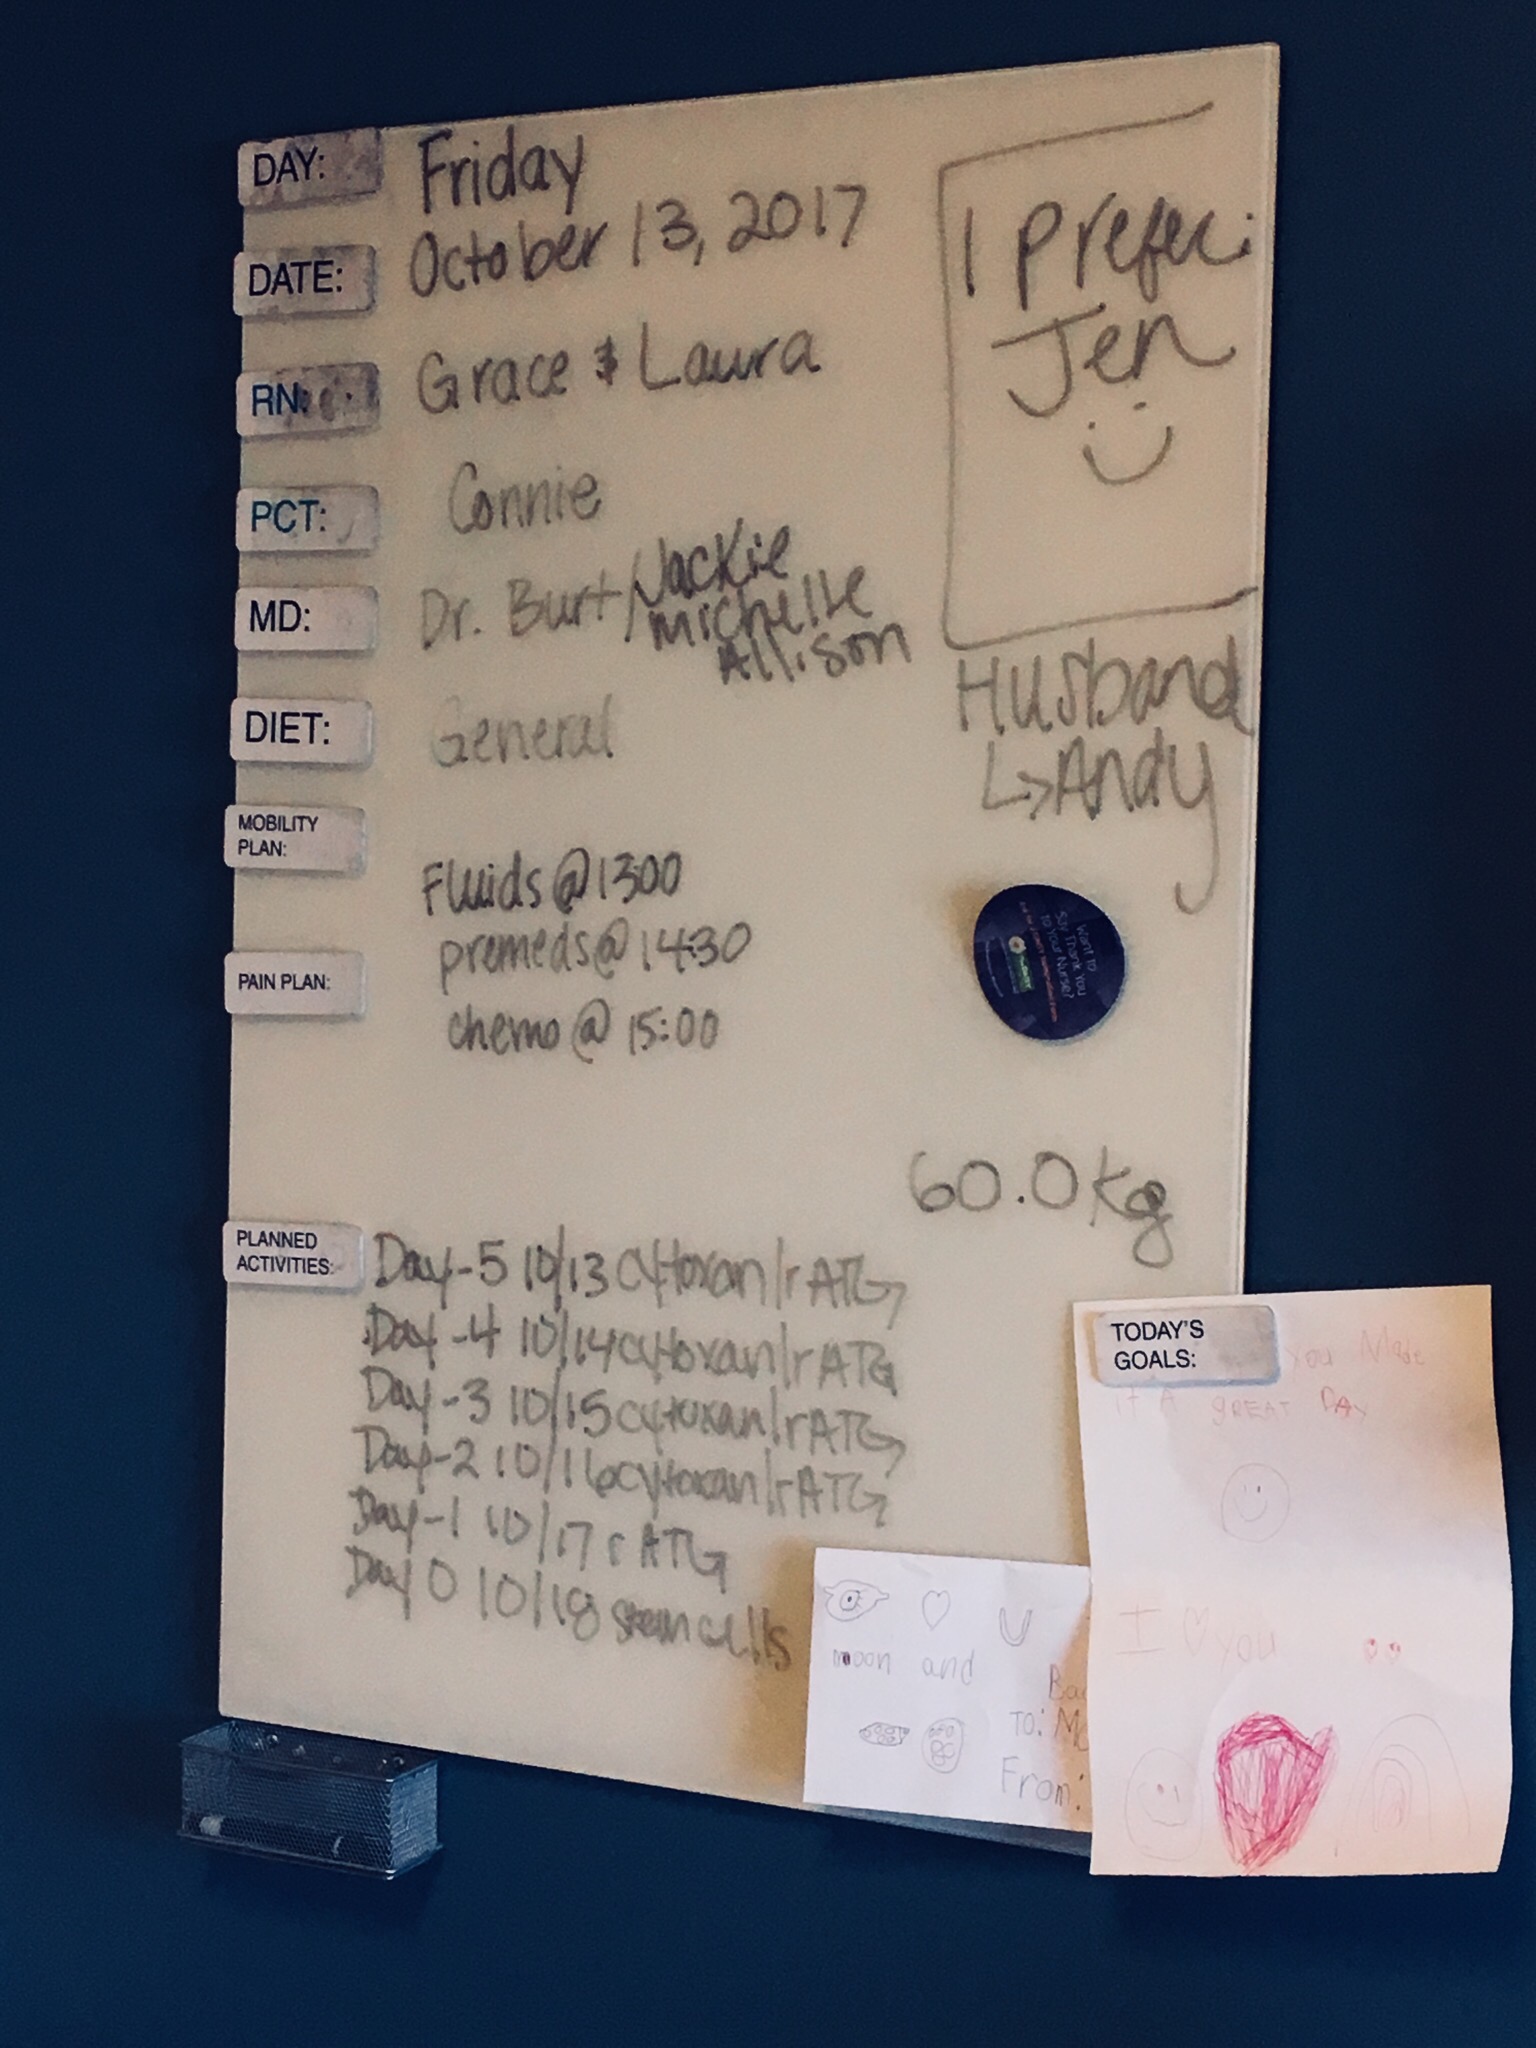 DAY: Friday
DATE: October 13, 2017
RN: Grace & Laura
PCT: Connie
MD: Dr. Burt/Jackie
Michelle
Allison
DIET: General
MOBILITY
PLAN:
Fluids @ 1300
premeds @ 1430
PAIN PLAN:
chemo @ 15:00
I prefer:
Jen
Husband
↳Andy
Want to
Say Thank You
to Your Nurse?
60.0 kg
PLANNED
ACTIVITIES:
Day -5 10/13 cytoxan/rATG
Day -4 10/14 cytoxan/rATG
Day -3 10/15 cytoxan/rATG
Day -2 10/16 cytoxan/rATG
Day -1 10/17 rATG
Day 0 10/18 stem cells
TODAY'S
GOALS:
you Made
it A GREAT DAY
I ♡ you
♡ U
moon and
Ba
To: Mo
From: